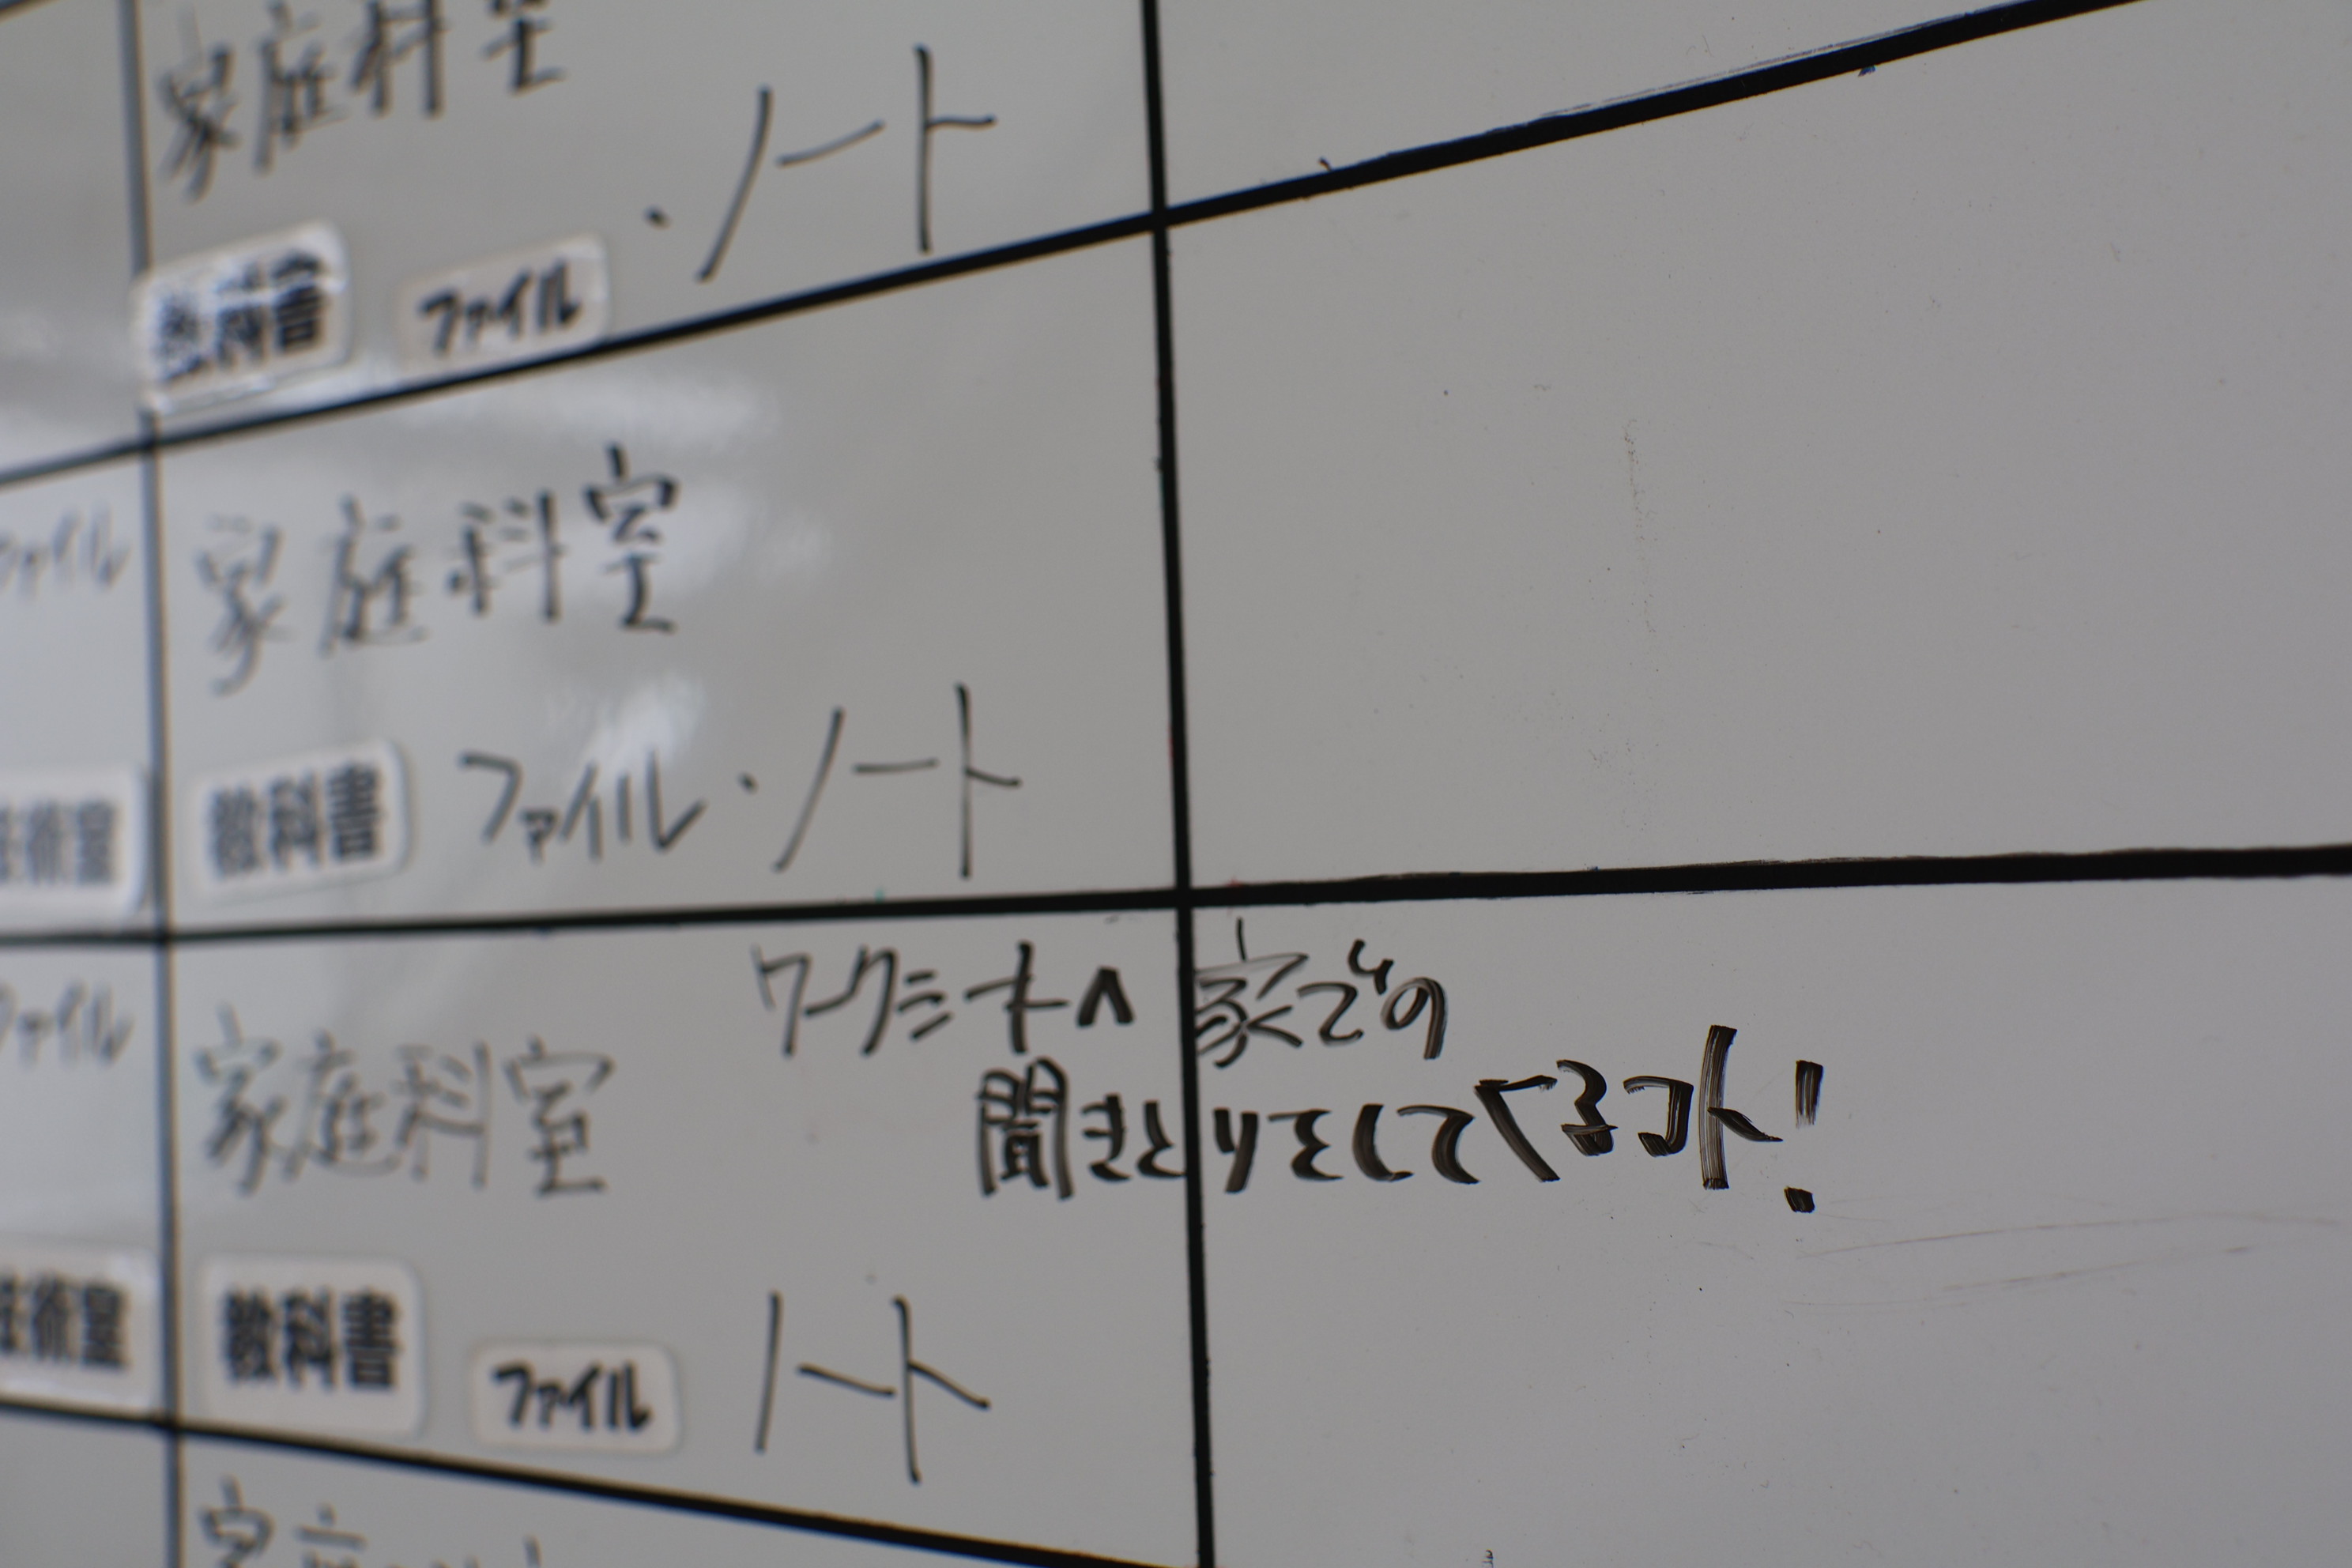 家庭科室
・ノート
教科書 ファイル
ファイル
家庭科室
技術室
教科書 ファイル・ノート
ファイル
家庭科室
ワークシートへ 家での
聞きとりをしてくるコト!
技術室
教科書 ファイル ノート
家庭